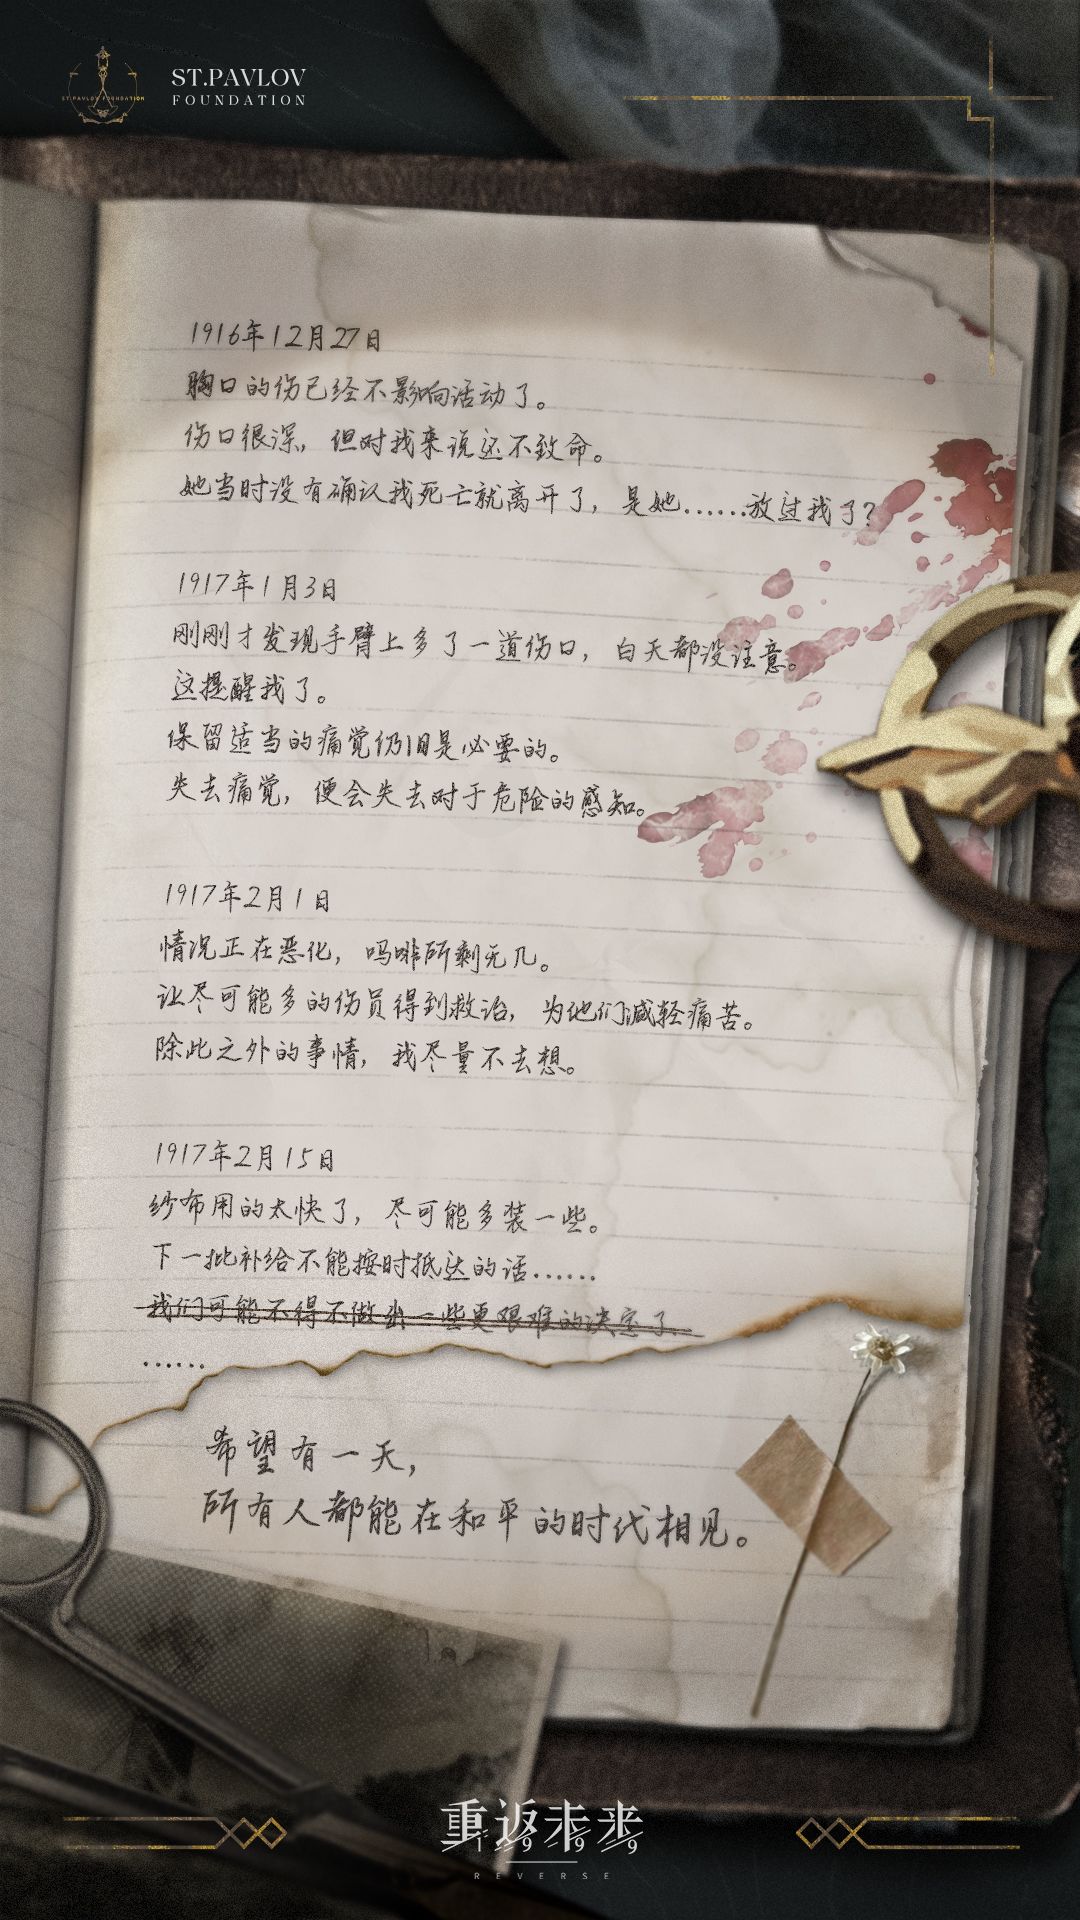 ST.PAVLOV FOUNDATION
ST.PAVLOV
FOUNDATION
1916年12月27日
胸口的伤已经不影响活动了。
伤口很深，但对我来说还不致命。
她当时没有确认我死亡就离开了，是她......放过我了？
1917年1月3日
刚刚才发现手臂上多了一道伤口，白天都没注意。
这提醒我了。
保留适当的痛觉仍旧是必要的。
失去痛觉，便会失去对于危险的感知。
1917年2月1日
情况正在恶化，吗啡所剩无几。
让尽可能多的伤员得到救治，为他们减轻痛苦。
除此之外的事情，我尽量不去想。
1917年2月15日
纱布用的太快了，尽可能多装一些。
下一批补给不能按时抵达的话......
我们可能不得不做出一些更艰难的决定了..
......
希望有一天，
所有人都能在和平的时代相见。
重返未来
1999
REVERSE